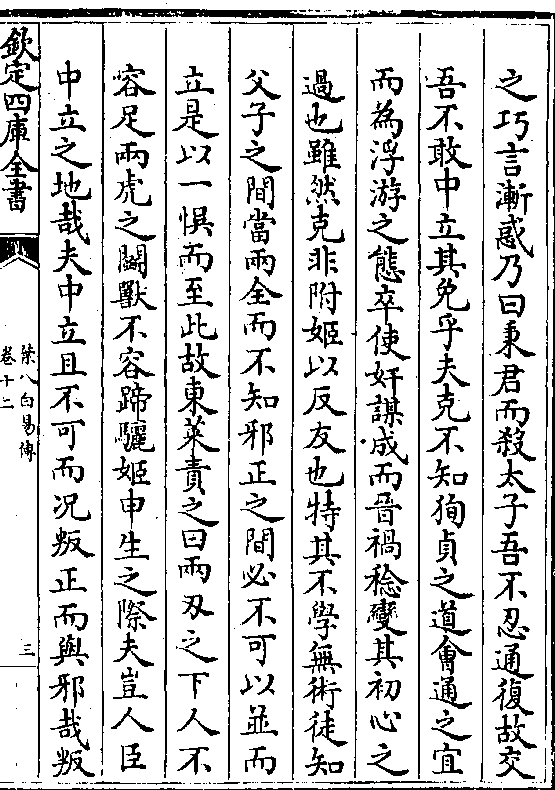 之巧言漸惑乃曰秉君而殺太子吾不忍通復故交
吾不敢中立其免乎夫克不知狥貞之道會通之宜
而為浮游之態卒使奸謀成而晉禍稔變其初心之
過也雖然克非附姬以反友也特其不學無術徒知
父子之間當兩全而不知邪正之間必不可以並而
立是以一惧而至此故東萊責之曰兩刃之下人不
容足兩虎之鬬獸不容蹄驪姬申生之際夫豈人臣
中立之地哉夫中立且不可而况叛正而與邪哉叛
欽定四庫全書
葉八白易傳
卷十二
三